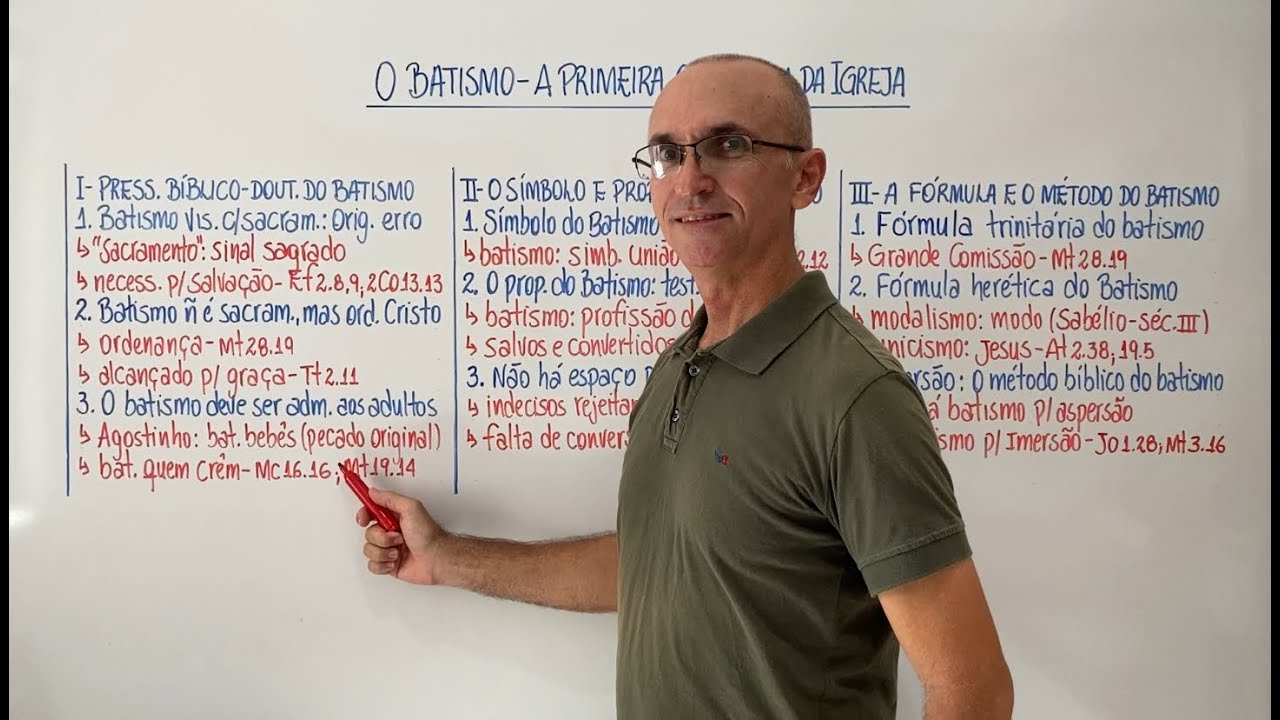 O BATISMO - A PRIMEIRA DA IGREJA
I- PRESS. BÍBLICO-DOUT. DO BATISMO
1. Batismo vis. c/sacram.: Orig. erro
↳ "Sacramento": sinal sagrado
↳ necess. p/ salvação - Ef 2.8,9; 2CO 13.13
2. Batismo ñ é sacram., mas ord. Cristo
↳ ordenança - Mt 28.19
↳ alcançado p/ graça - Tt 2.11
3. O batismo deve ser adm. aos adultos
↳ Agostinho: bat. bebês (pecado original)
↳ bat. quem crêm - Mc 16.16; Mt 19.14
II- O SÍMBOLO E
1. Símbolo do Batismo
↳ batismo: simb. união .12
2. O prop. do Batismo:
↳ batismo: profissão
↳ salvos e convertidos
3. Não há espaço
↳ indecisos
↳ falta de
III- A FÓRMULA E O MÉTODO DO BATISMO
1. Fórmula trinitária do batismo
↳ Grande Comissão - Mt 28.19
2. Fórmula herética do Batismo
↳ modalismo: modo (Sabélio - séc. III)
nicismo: Jesus - At 2.38; 19.5
ersão: O método bíblico do batismo
á batismo p/ aspersão
ismo p/ Imersão - Jo 1.28; Mt 3.16